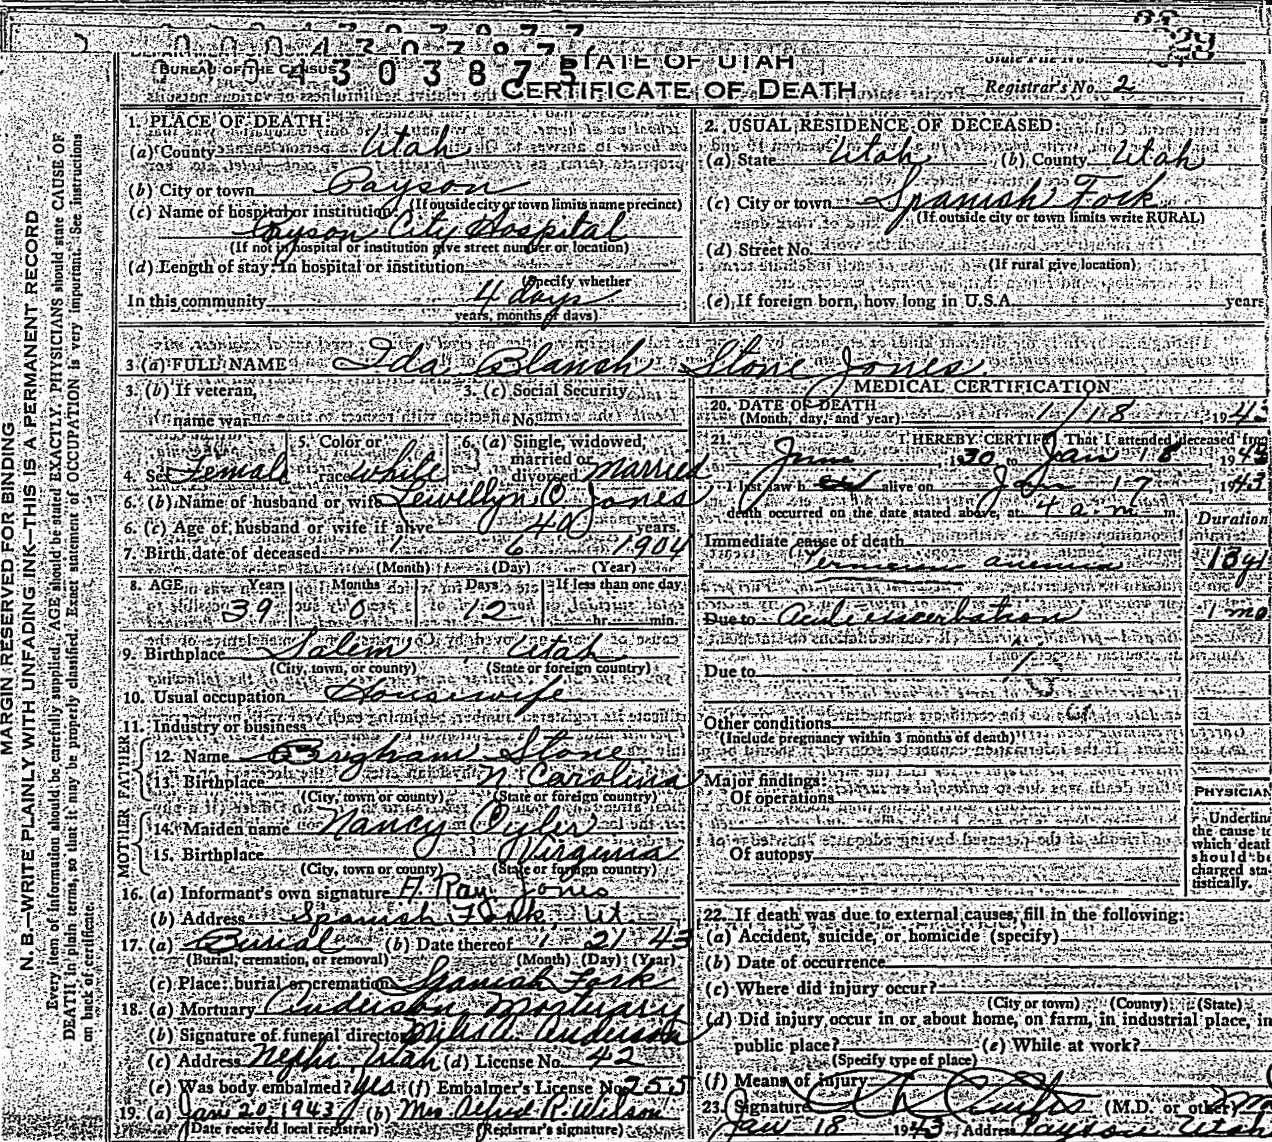 BUREAU OF THE CENSUS
STATE OF UTAH
4303875
CERTIFICATE OF DEATH
State File No.
Registrar's No. 2
MARGIN RESERVED FOR BINDING
N. B.—WRITE PLAINLY WITH UNFADING INK—THIS IS A PERMANENT RECORD
Every item of information should be carefully supplied. AGE should be stated EXACTLY. PHYSICIANS should state CAUSE OF
DEATH in plain terms, so that it may be properly classified. Exact statement of OCCUPATION is very important. See instructions
on back of certificate.
1. PLACE OF DEATH:
(a) County Utah
(b) City or town Payson
(If outside city or town limits name precinct)
(c) Name of hospital or institution:
Payson City Hospital
(If not in hospital or institution give street number or location)
(d) Length of stay: In hospital or institution
(Specify whether
In this community 4 days
years, months or days)
2. USUAL RESIDENCE OF DECEASED:
(a) State Utah (b) County Utah
(c) City or town Spanish Fork
(If outside city or town limits write RURAL)
(d) Street No.
(If rural give location)
(e) If foreign born, how long in U.S.A. years
3. (a) FULL NAME Ida Blansh Stone Jones
3. (b) If veteran, name war
3. (c) Social Security No.
4. Sex Female
5. Color or race white
6. (a) Single, widowed, married or divorced married
6. (b) Name of husband or wife Lewellyn O. Jones
6. (c) Age of husband or wife if alive 40 years.
7. Birth date of deceased 1 6 1904
(Month) (Day) (Year)
8. AGE Years Months Days If less than one day
39 0 12 hr. min.
9. Birthplace Salem Utah
(City, town, or county) (State or foreign country)
10. Usual occupation Housewife
11. Industry or business
FATHER
12. Name Brigham Stone
13. Birthplace N. Carolina
(City, town or county) (State or foreign country)
MOTHER
14. Maiden name Nancy Oyler
15. Birthplace Virginia
(City, town or county) (State or foreign country)
16. (a) Informant's own signature A. Ray Jones
(b) Address Spanish Fork, Ut
17. (a) Burial (b) Date thereof 1 21 43
(Burial, cremation, or removal) (Month) (Day) (Year)
(c) Place: burial or cremation Spanish Fork
18. (a) Mortuary Anderson Mortuary
(b) Signature of funeral director Miles A. Anderson
(c) Address Nephi Utah (d) License No. 42
(e) Was body embalmed? yes (f) Embalmer's License No. 255
19. (a) Jan 20, 1943 (b) Mrs Alfred R. Wilson
(Date received local registrar) (Registrar's signature)
MEDICAL CERTIFICATION
20. DATE OF DEATH 1/18, 1943
(Month, day, and year)
21. I HEREBY CERTIFY, That I attended deceased from
June, 1930 to Jan 18, 1943
I last saw h er alive on Jan 17, 1943
death occurred on the date stated above, at 4 a.m. m.
Duration
Immediate cause of death
Pernicious anemia 13 yr
Due to acute exacerbation 1 mo
Due to
Other conditions
(Include pregnancy within 3 months of death)
Major findings:
Of operations
Of autopsy
PHYSICIAN
Underline
the cause to
which death
should be
charged sta-
tistically.
22. If death was due to external causes, fill in the following:
(a) Accident, suicide, or homicide (specify)
(b) Date of occurrence
(c) Where did injury occur?
(City or town) (County) (State)
(d) Did injury occur in or about home, on farm, in industrial place, in
public place? (e) While at work?
(Specify type of place)
(f) Means of injury
23. Signature (M.D. or other)
Jan 18 1943 Address Payson Utah